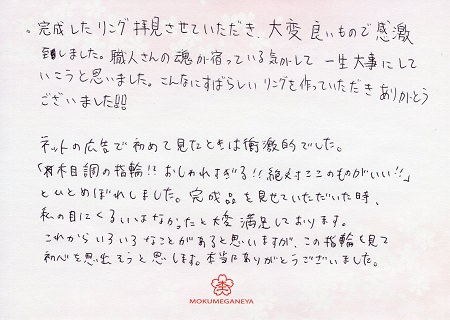 。完成したリング拝見させていただき、大変良いもので感激
致しました。職人さんの魂が宿っている気がして 一生大事にして
いこうと思いました。こんなにすばらしいリングを作っていただきありがとう
ございました!!
ネットの広告で初めて見たときは衝激的でした。
「木目調の指輪!!おしゃれすぎる!!絶対ここのものがいい!!」
とひとめぼれしました。完成品を見せていただいた時、
私の目にくるいはなかったと大変満足しております。
これからいろいろなことがあると思いますが、この指輪を見て
初心を思い出そうと思います。本当にありがとうございました。
MOKUMEGANEYA